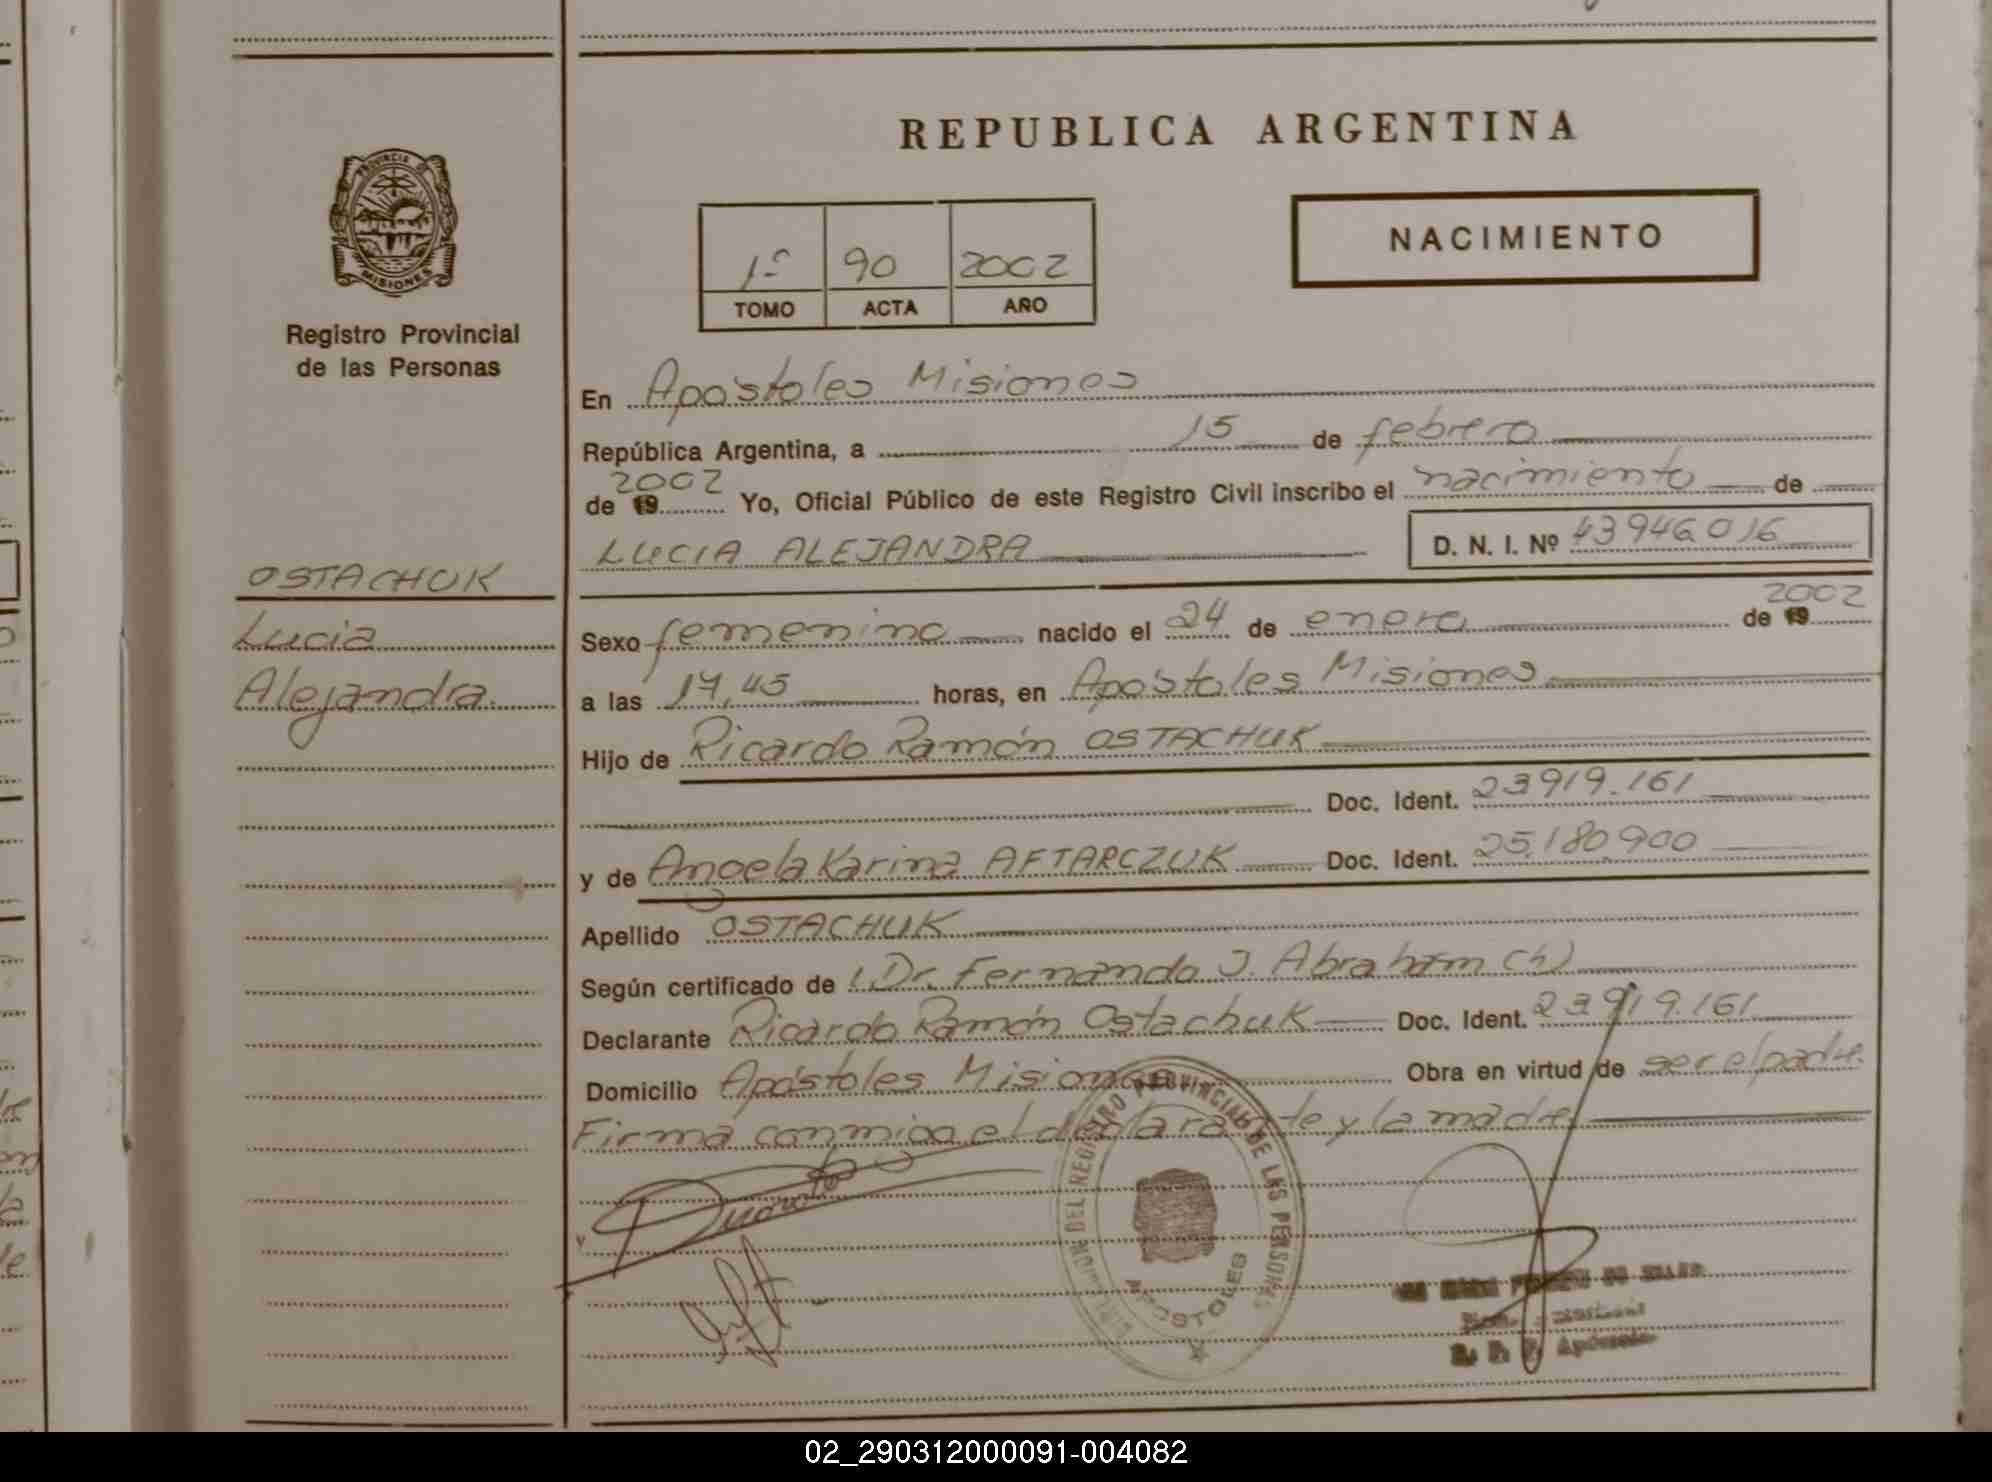 REPUBLICA ARGENTINA
PROVINCIA DE
MISIONES
Registro Provincial
de las Personas
1º 90 2002
TOMO ACTA AÑO
NACIMIENTO
En Apóstoles Misiones
República Argentina, a 15 de febrero
de 19 2002 Yo, Oficial Público de este Registro Civil inscribo el nacimiento de
LUCIA ALEJANDRA D. N. I. Nº 43946016
OSTACHUK
Lucia
Alejandra.
Sexo femenino nacido el 24 de enero de 19 2002
a las 17,45 horas, en Apóstoles Misiones
Hijo de Ricardo Ramón OSTACHUK
Doc. Ident. 23919.161
y de Angela Karina AFTARCZUK Doc. Ident. 25.180.900
Apellido OSTACHUK
Según certificado de Dr. Fernando J. Abraham (h)
Declarante Ricardo Ramón Ostachuk Doc. Ident. 23919.161
Domicilio Apóstoles Misiones Obra en virtud de ser el padre.
Firma conmigo el declarante y la madre.
DEL REGISTRO PROVINCIAL DE LAS PERSONAS
APOSTOLES
02_290312000091-004082